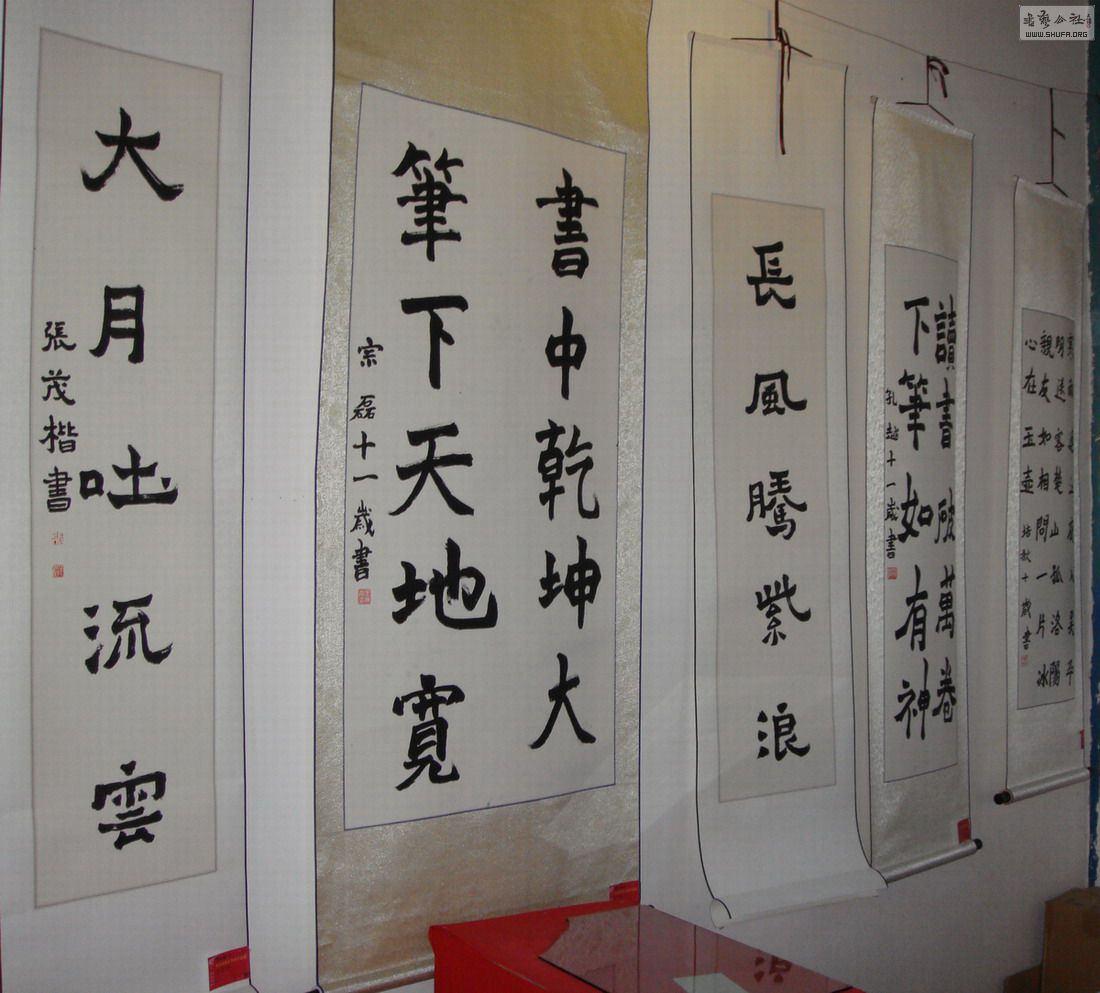 大月吐流雲
張茂楷書
書中乾坤大
筆下天地寬
宗磊十一歲書
長風騰紫浪
讀書破萬卷
下筆如有神
十一歲書
寒雨連江夜入吳平
明送客楚山孤洛陽
親友如相問一片冰
心在玉壺
十歲書
WWW.SHUFA.ORG